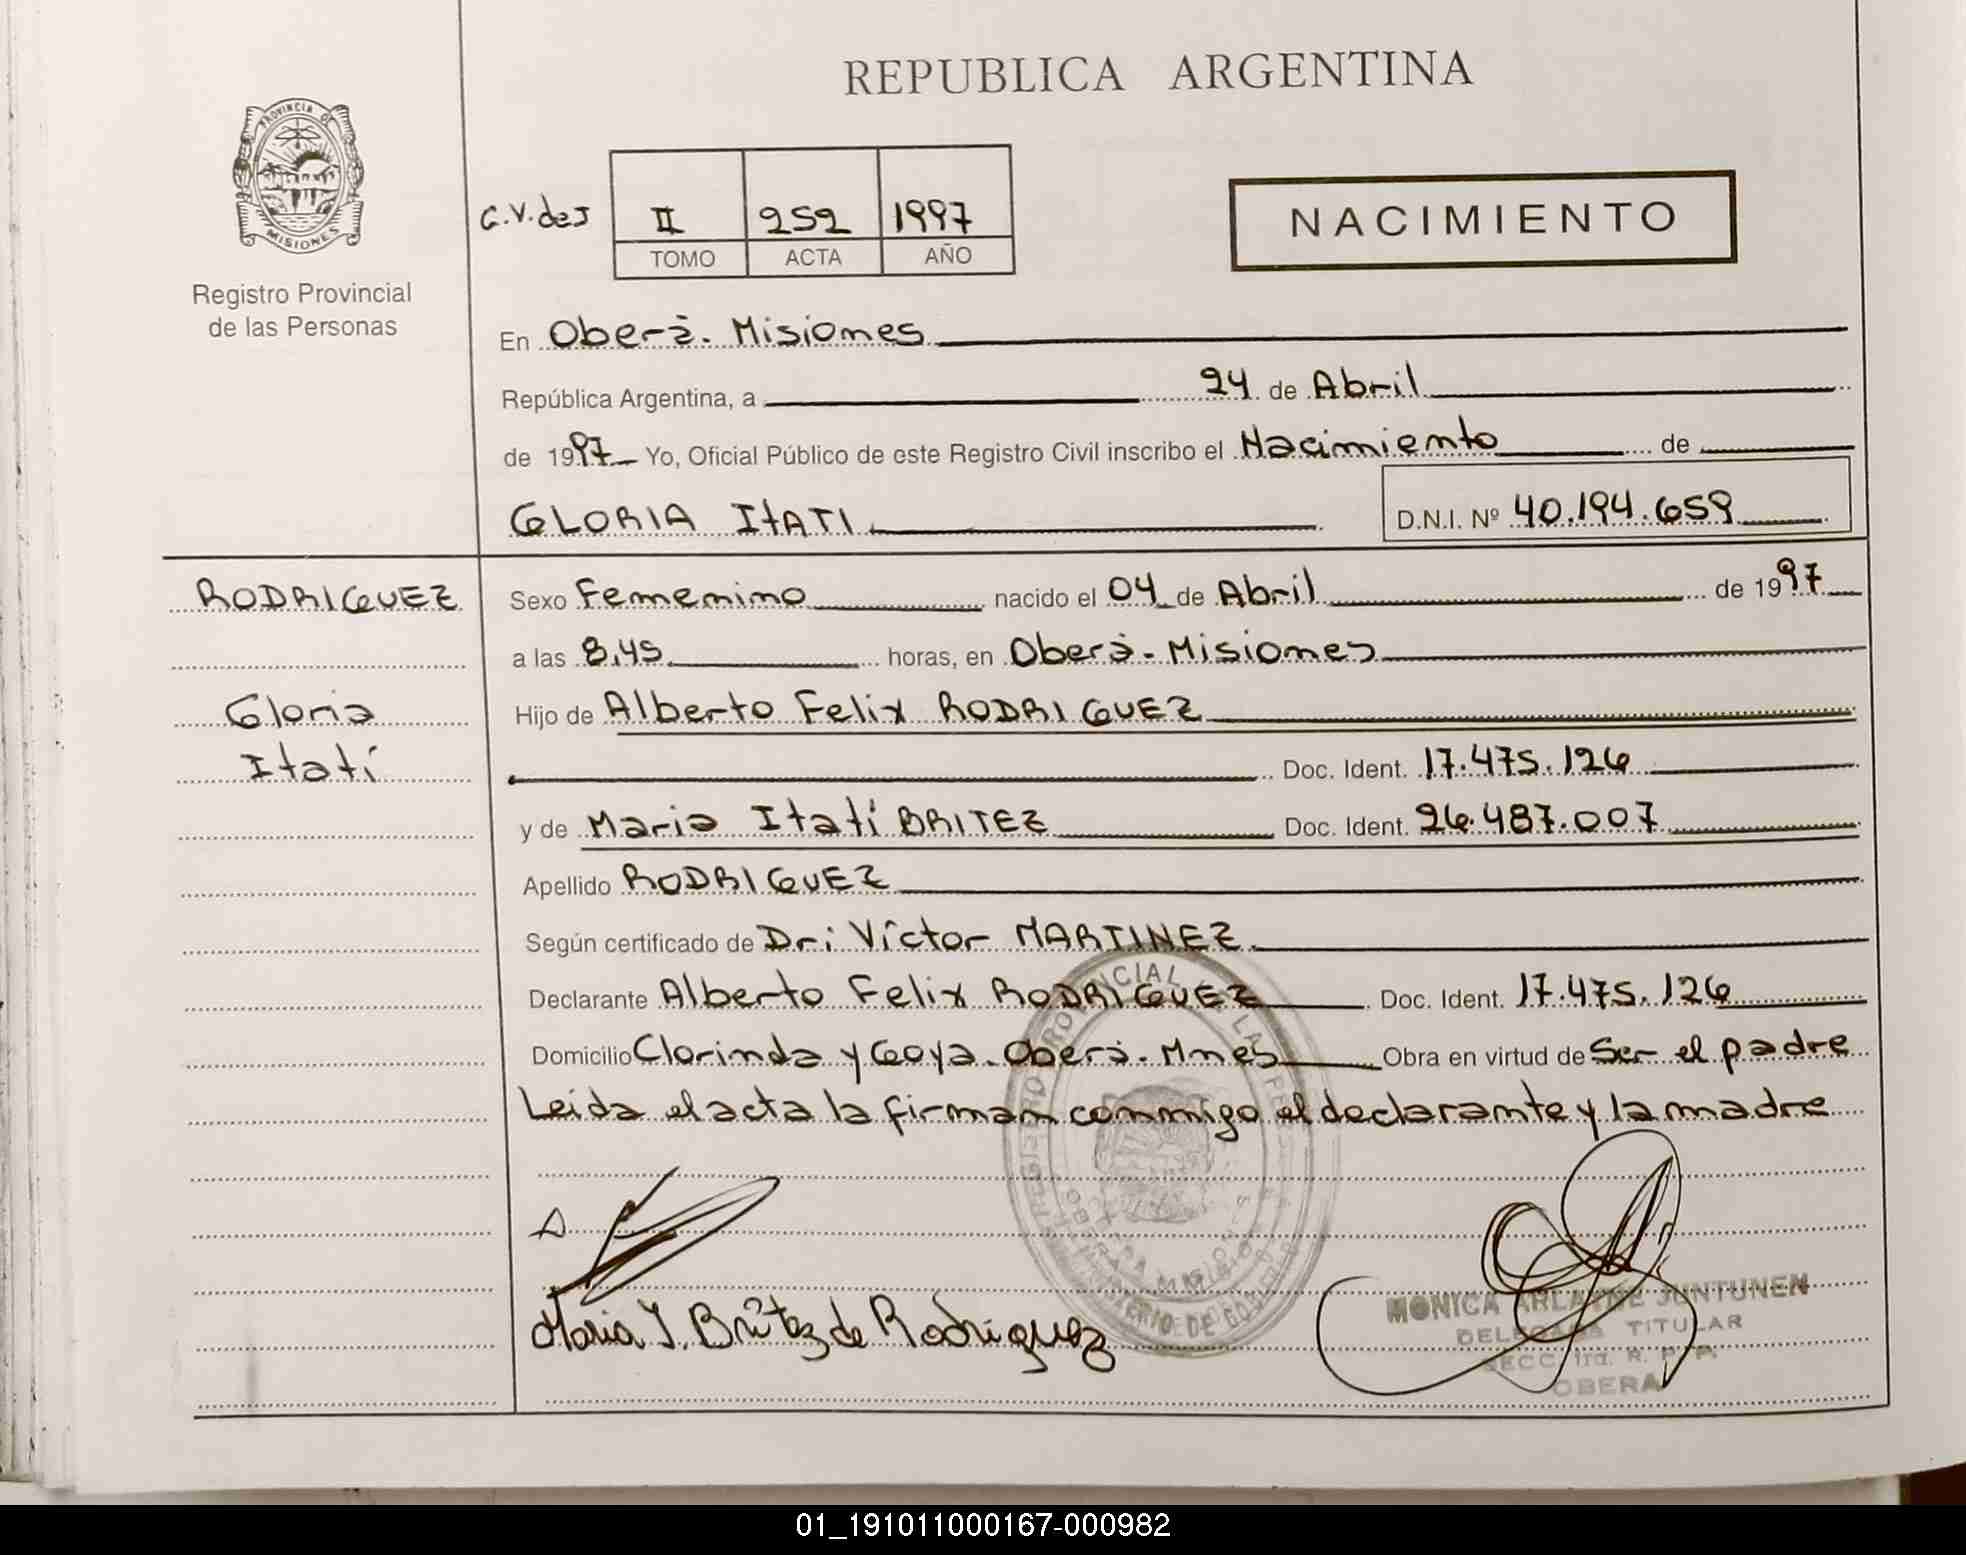 REPUBLICA ARGENTINA
PROVINCIA DE
MISIONES
Registro Provincial
de las Personas
II 252 1997
TOMO ACTA AÑO
NACIMIENTO
En Oberà. Misiones
República Argentina, a 24 de Abril
de 1997 Yo, Oficial Público de este Registro Civil inscribo el Nacimiento de
GLORIA ItATI D.N.I. Nº 40.194.659
RODRIGUEZ
Gloria
Itatí
Sexo Femenino nacido el 04 de Abril de 1997
a las 8,45 horas, en Oberà - Misiones
Hijo de Alberto Felix RODRIGUEZ
Doc. Ident. 17.475.126
y de Maria Itatí BRITEZ Doc. Ident. 26.487.007
Apellido RODRIGUEZ
Según certificado de Dr: Víctor MARTINEZ
Declarante Alberto Felix RODRIGUEZ Doc. Ident. 17.475.126
Domicilio Clorinda y Goya. Oberà. Mnes Obra en virtud de Ser el padre
Leida el acta la firman conmigo el declarante y la madre
Maria I. Britez de Rodriguez
MONICA JUNTUNEN
DELEGADA TITULAR
SECC. 1ra. R. P. P.
OBERA
01_191011000167-000982